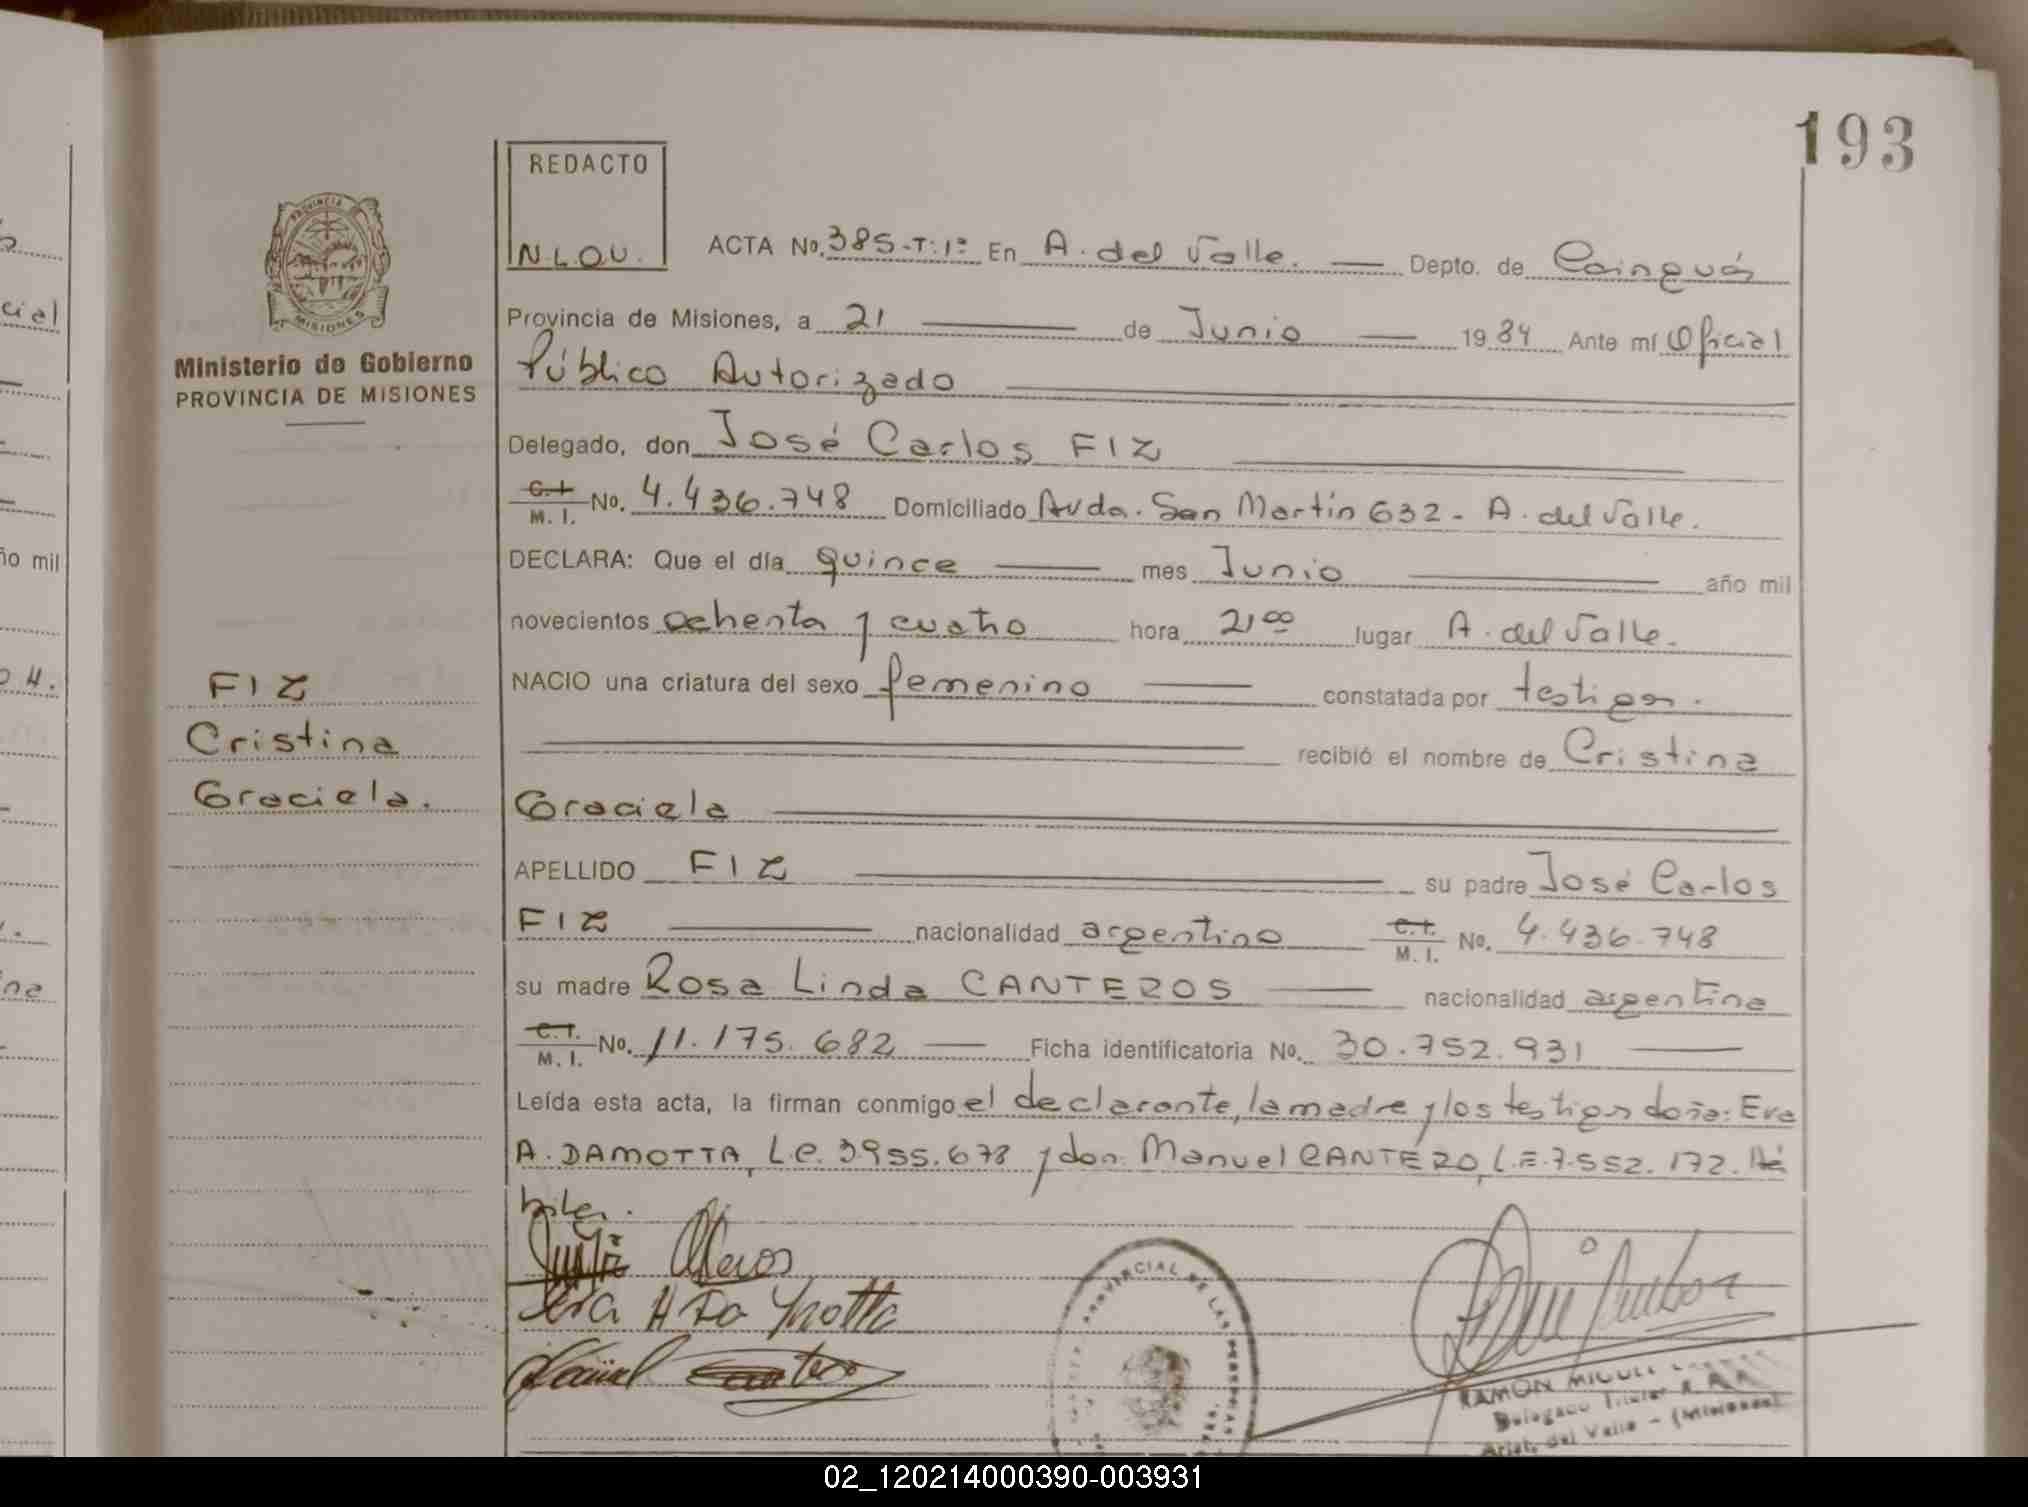 193
REDACTO
N.L.O.U.
PROVINCIA
MISIONES
Ministerio de Gobierno
PROVINCIA DE MISIONES
ACTA No. 385-T:1º En A. del Valle. Depto. de Cainguás
Provincia de Misiones, a 21 de Junio 1984 Ante mí Oficial
Público Autorizado
Delegado, don José Carlos FIZ
C.I. M. I. No. 4.436.748 Domiciliado Avda. San Martín 632 - A. del Valle.
DECLARA: Que el día quince mes Junio año mil
novecientos ochenta y cuatro hora 21⁰⁰ lugar A. del Valle.
NACIO una criatura del sexo femenino constatada por testigos.
recibió el nombre de Cristina
Graciela
FIZ
Cristina
Graciela.
APELLIDO FIZ su padre José Carlos
FIZ nacionalidad argentino C.I. M. I. No. 4.436.748
su madre Rosa Linda CANTEROS nacionalidad argentina
C.I. M. I. No. 11.175.682 Ficha identificatoria No. 30.752.931
Leída esta acta, la firman conmigo el declarante, la madre y los testigos doña: Eva
A. DAMOTTA, L.C. 3955.678 y don: Manuel CANTERO, L.E. 7.552.172. Há
biles.
Eva A Da Motta
PROVINCIAL DE LAS PERSONAS
RAMON MIGUEL
Delegado Titular
Arist. del Valle - (Misiones)
ño mil
02_120214000390-003931